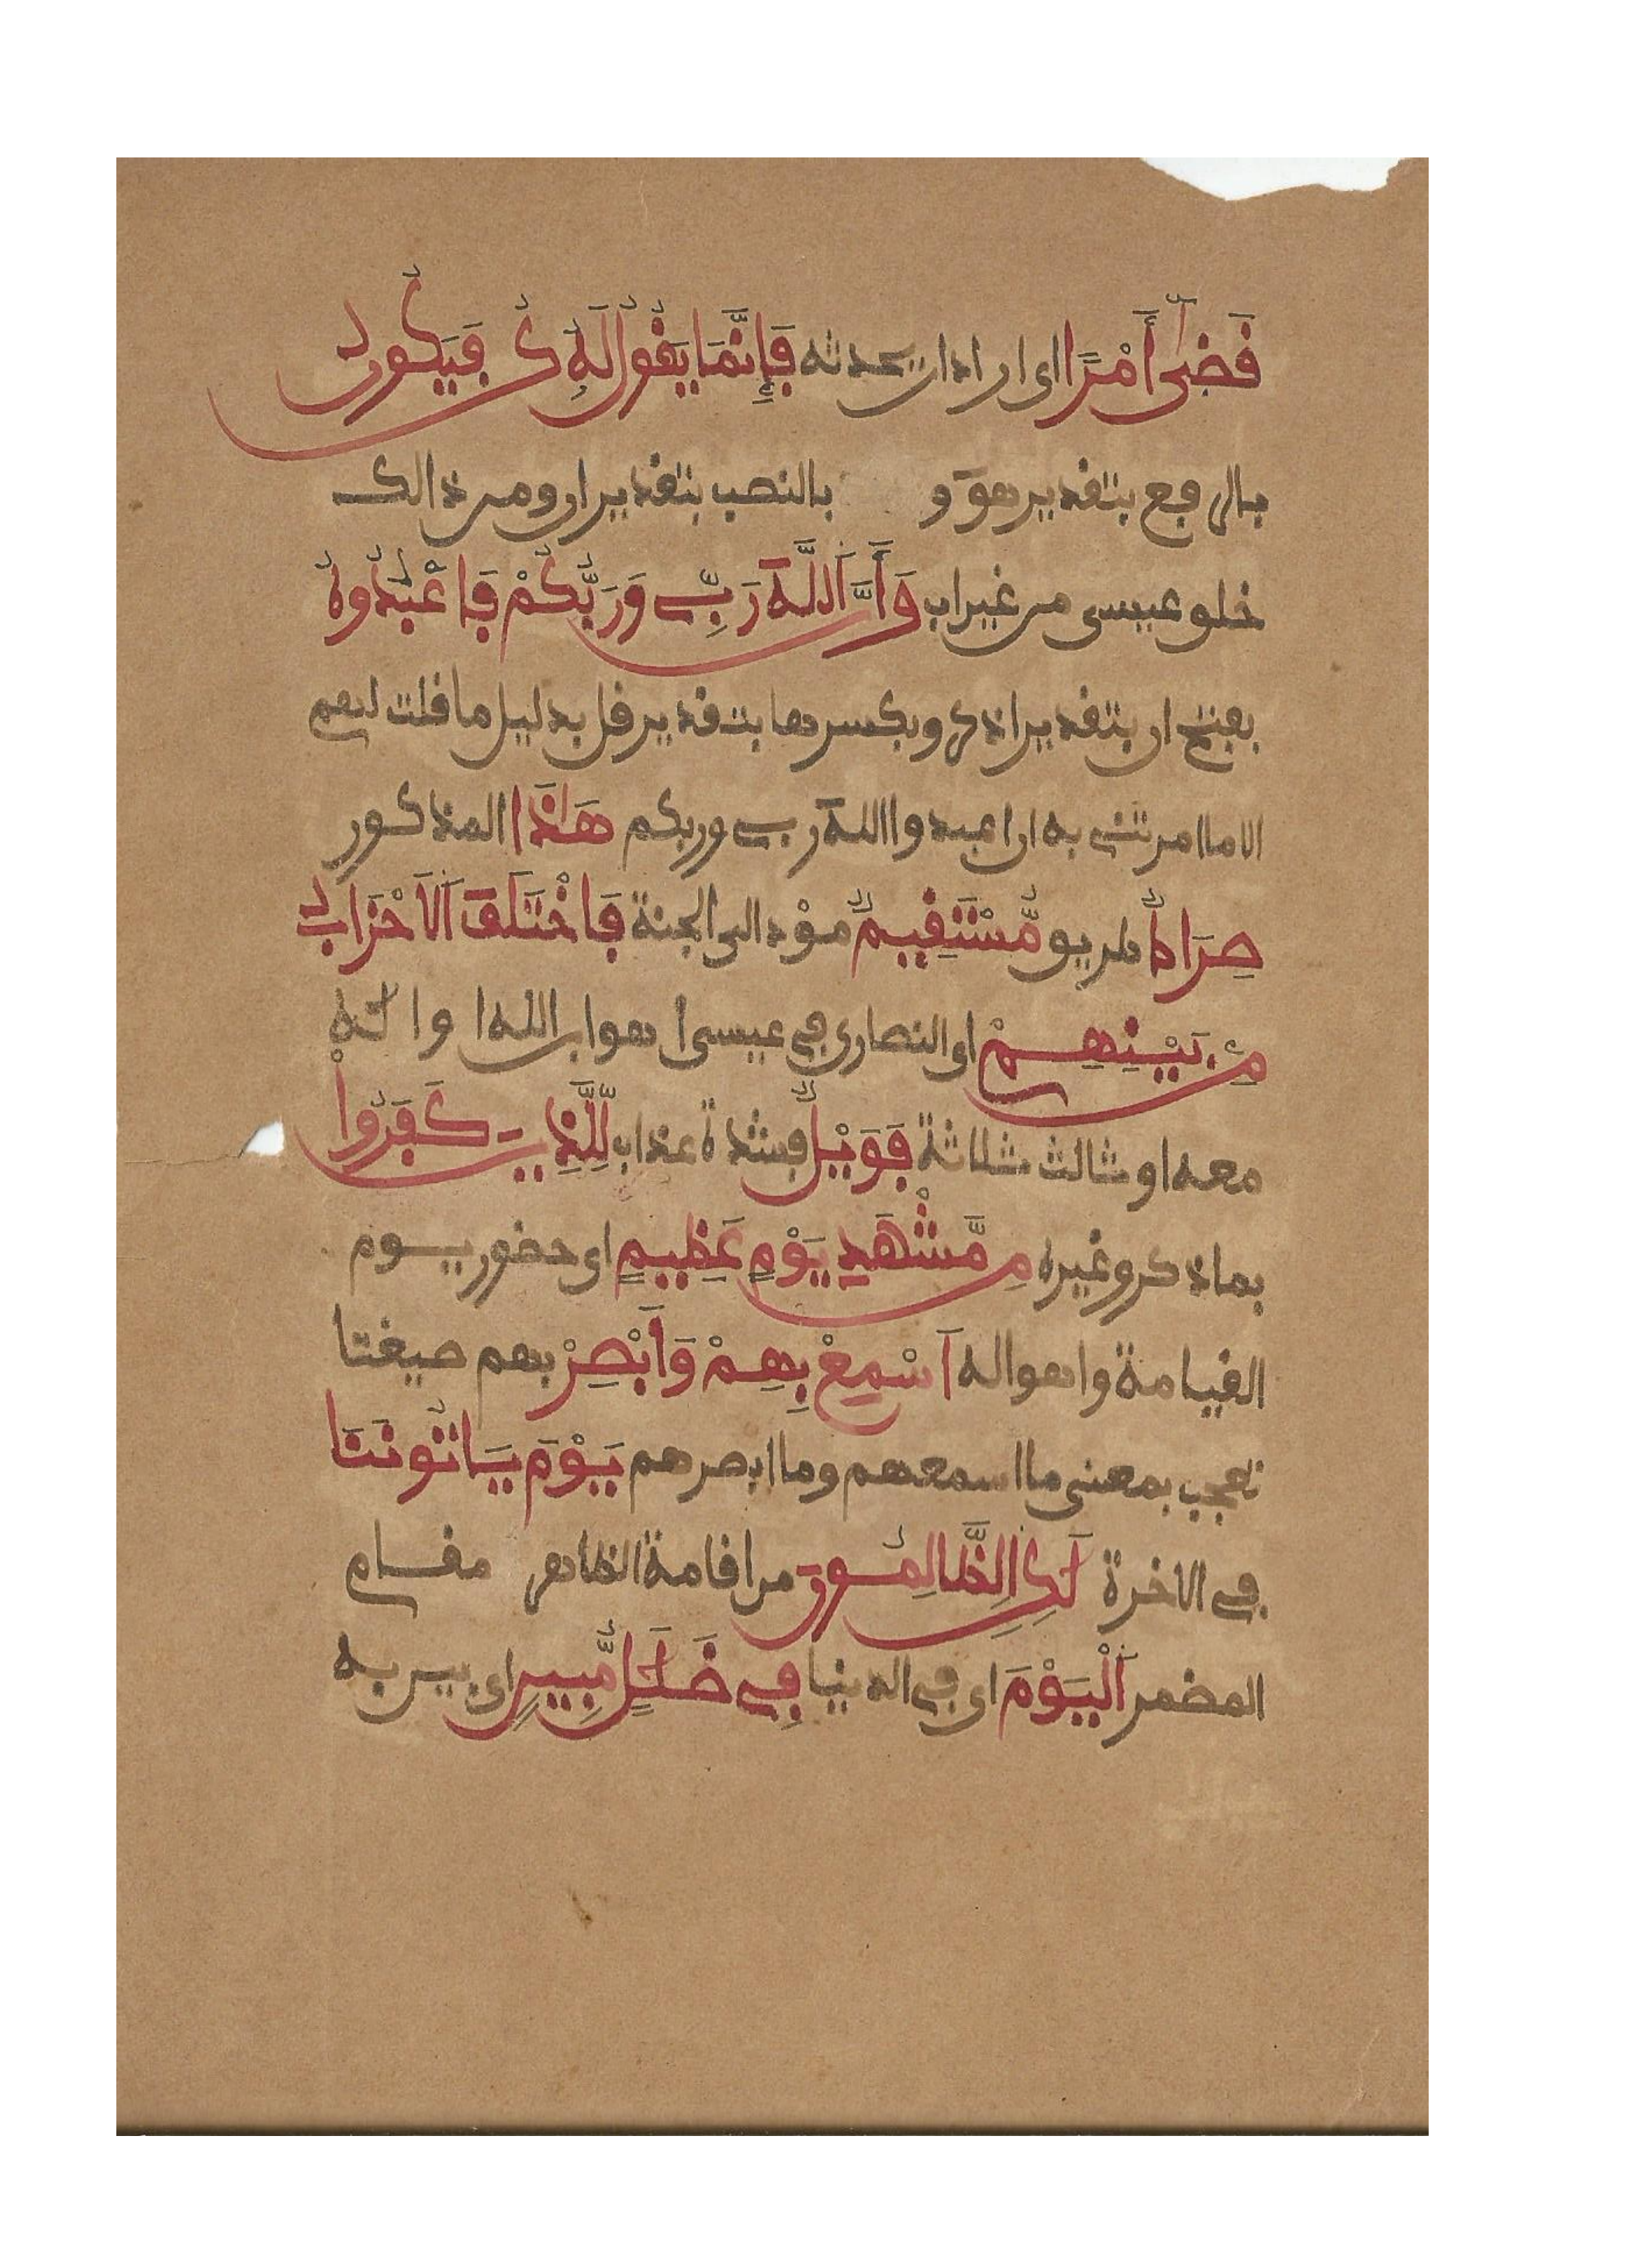 قَضَىٰ أَمْرًا اى اراد ان يحدثه فَإِنَّمَا يَقُولُ لَهُ كُن فَيَكُونُ
بالرفع بتقدير هو و بالنصب بتقدير ان ومن ذالك
خلق عيسى من غير اب وَأَنَّ اَللَّهَ رَبِّے وَرَبُّكُمْ فَاعْبُدُوهُ
بفتح ان بتقدير اذكر وبكسرها بتقدير قل بدليل ما قلت لهم
الا ما امرتنے به ان اعبدوا الله ربے وربكم هَـٰذَا المذكور
صِرَاطٌ طريق مُّسْتَقِيمٌ مؤد الى الجنة فَاخْتَلَفَ اَلَاحْزَابُ
مِنۢ بَيْنِهِمْ اى النصارى فے عيسى اهو ابن الله ا و اله
معه او ثالث ثلاثة فَوَيْلٌ فشدة عذاب لِّلَّذِينَ كَفَرُواْ
بما ذكر وغيره مِن مَّشْهَدِ يَوْمٍ عَظِيمٍ اى حضور يوم
القيامة واهواله أَسْمِعْ بِهِمْ وَأَبْصِرْ بهم صيغتا
تعجب بمعنى ما اسمعهم وما ابصرهم يَوْمَ يَاتُونَنَا
فے الاخرة لَـٰكِنِ اِلظَّالِمُونَ من اقامة الظاهر مقام
المضمر اَلْيَوْمَ اى فے الدنيا فِے ضَلَـٰلٍ مُّبِينٍ اى بين به